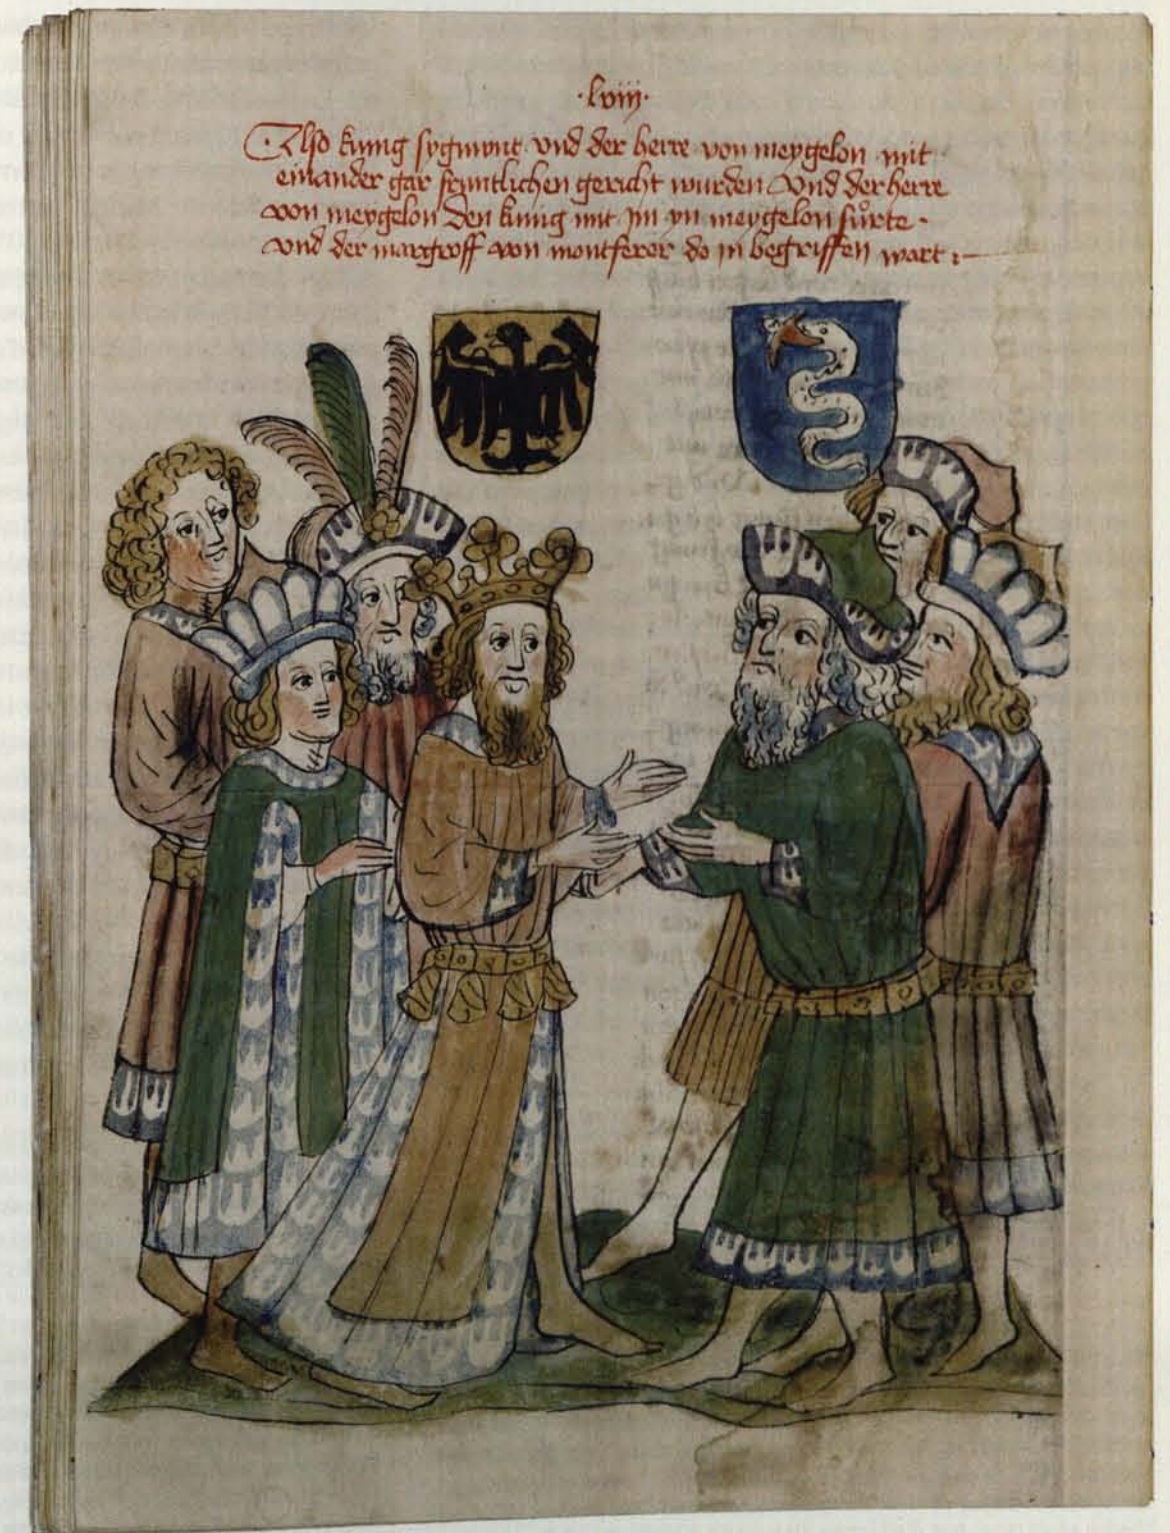 ·lviij·
Also kunig sygmont vnd der herre von meygelon mit
einander gar fruntlichen gericht wurden Vnd der herre
von meygelon den kunig mit jm yn meygelon fůrte ·
vnd der margroff von montferer do in begriffen wart :~